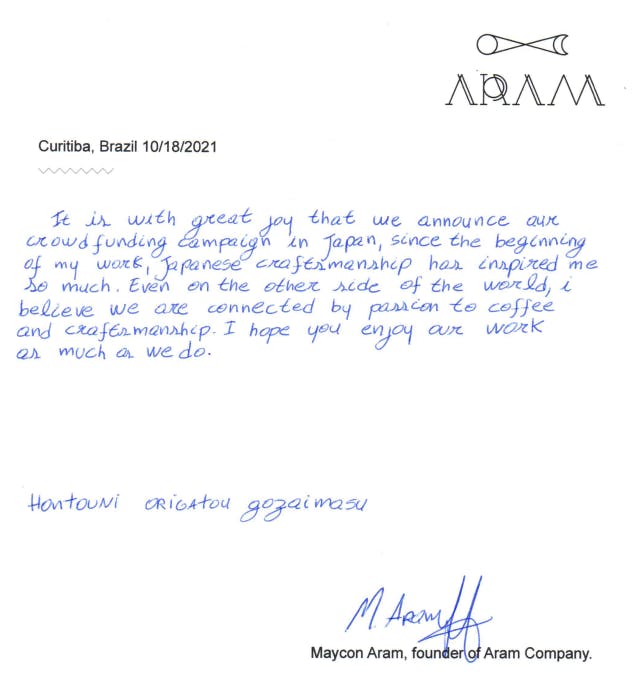 ARAM
Curitiba, Brazil 10/18/2021
It is with great joy that we announce our
crowdfunding campaign in Japan, since the beginning
of my work, Japanese craftsmanship has inspired me
so much. Even on the other side of the world, i
believe we are connected by passion to coffee
and craftsmanship. I hope you enjoy our work
as much as we do.
Hontouni origatou gozaimasu
M. Aram
Maycon Aram, founder of Aram Company.